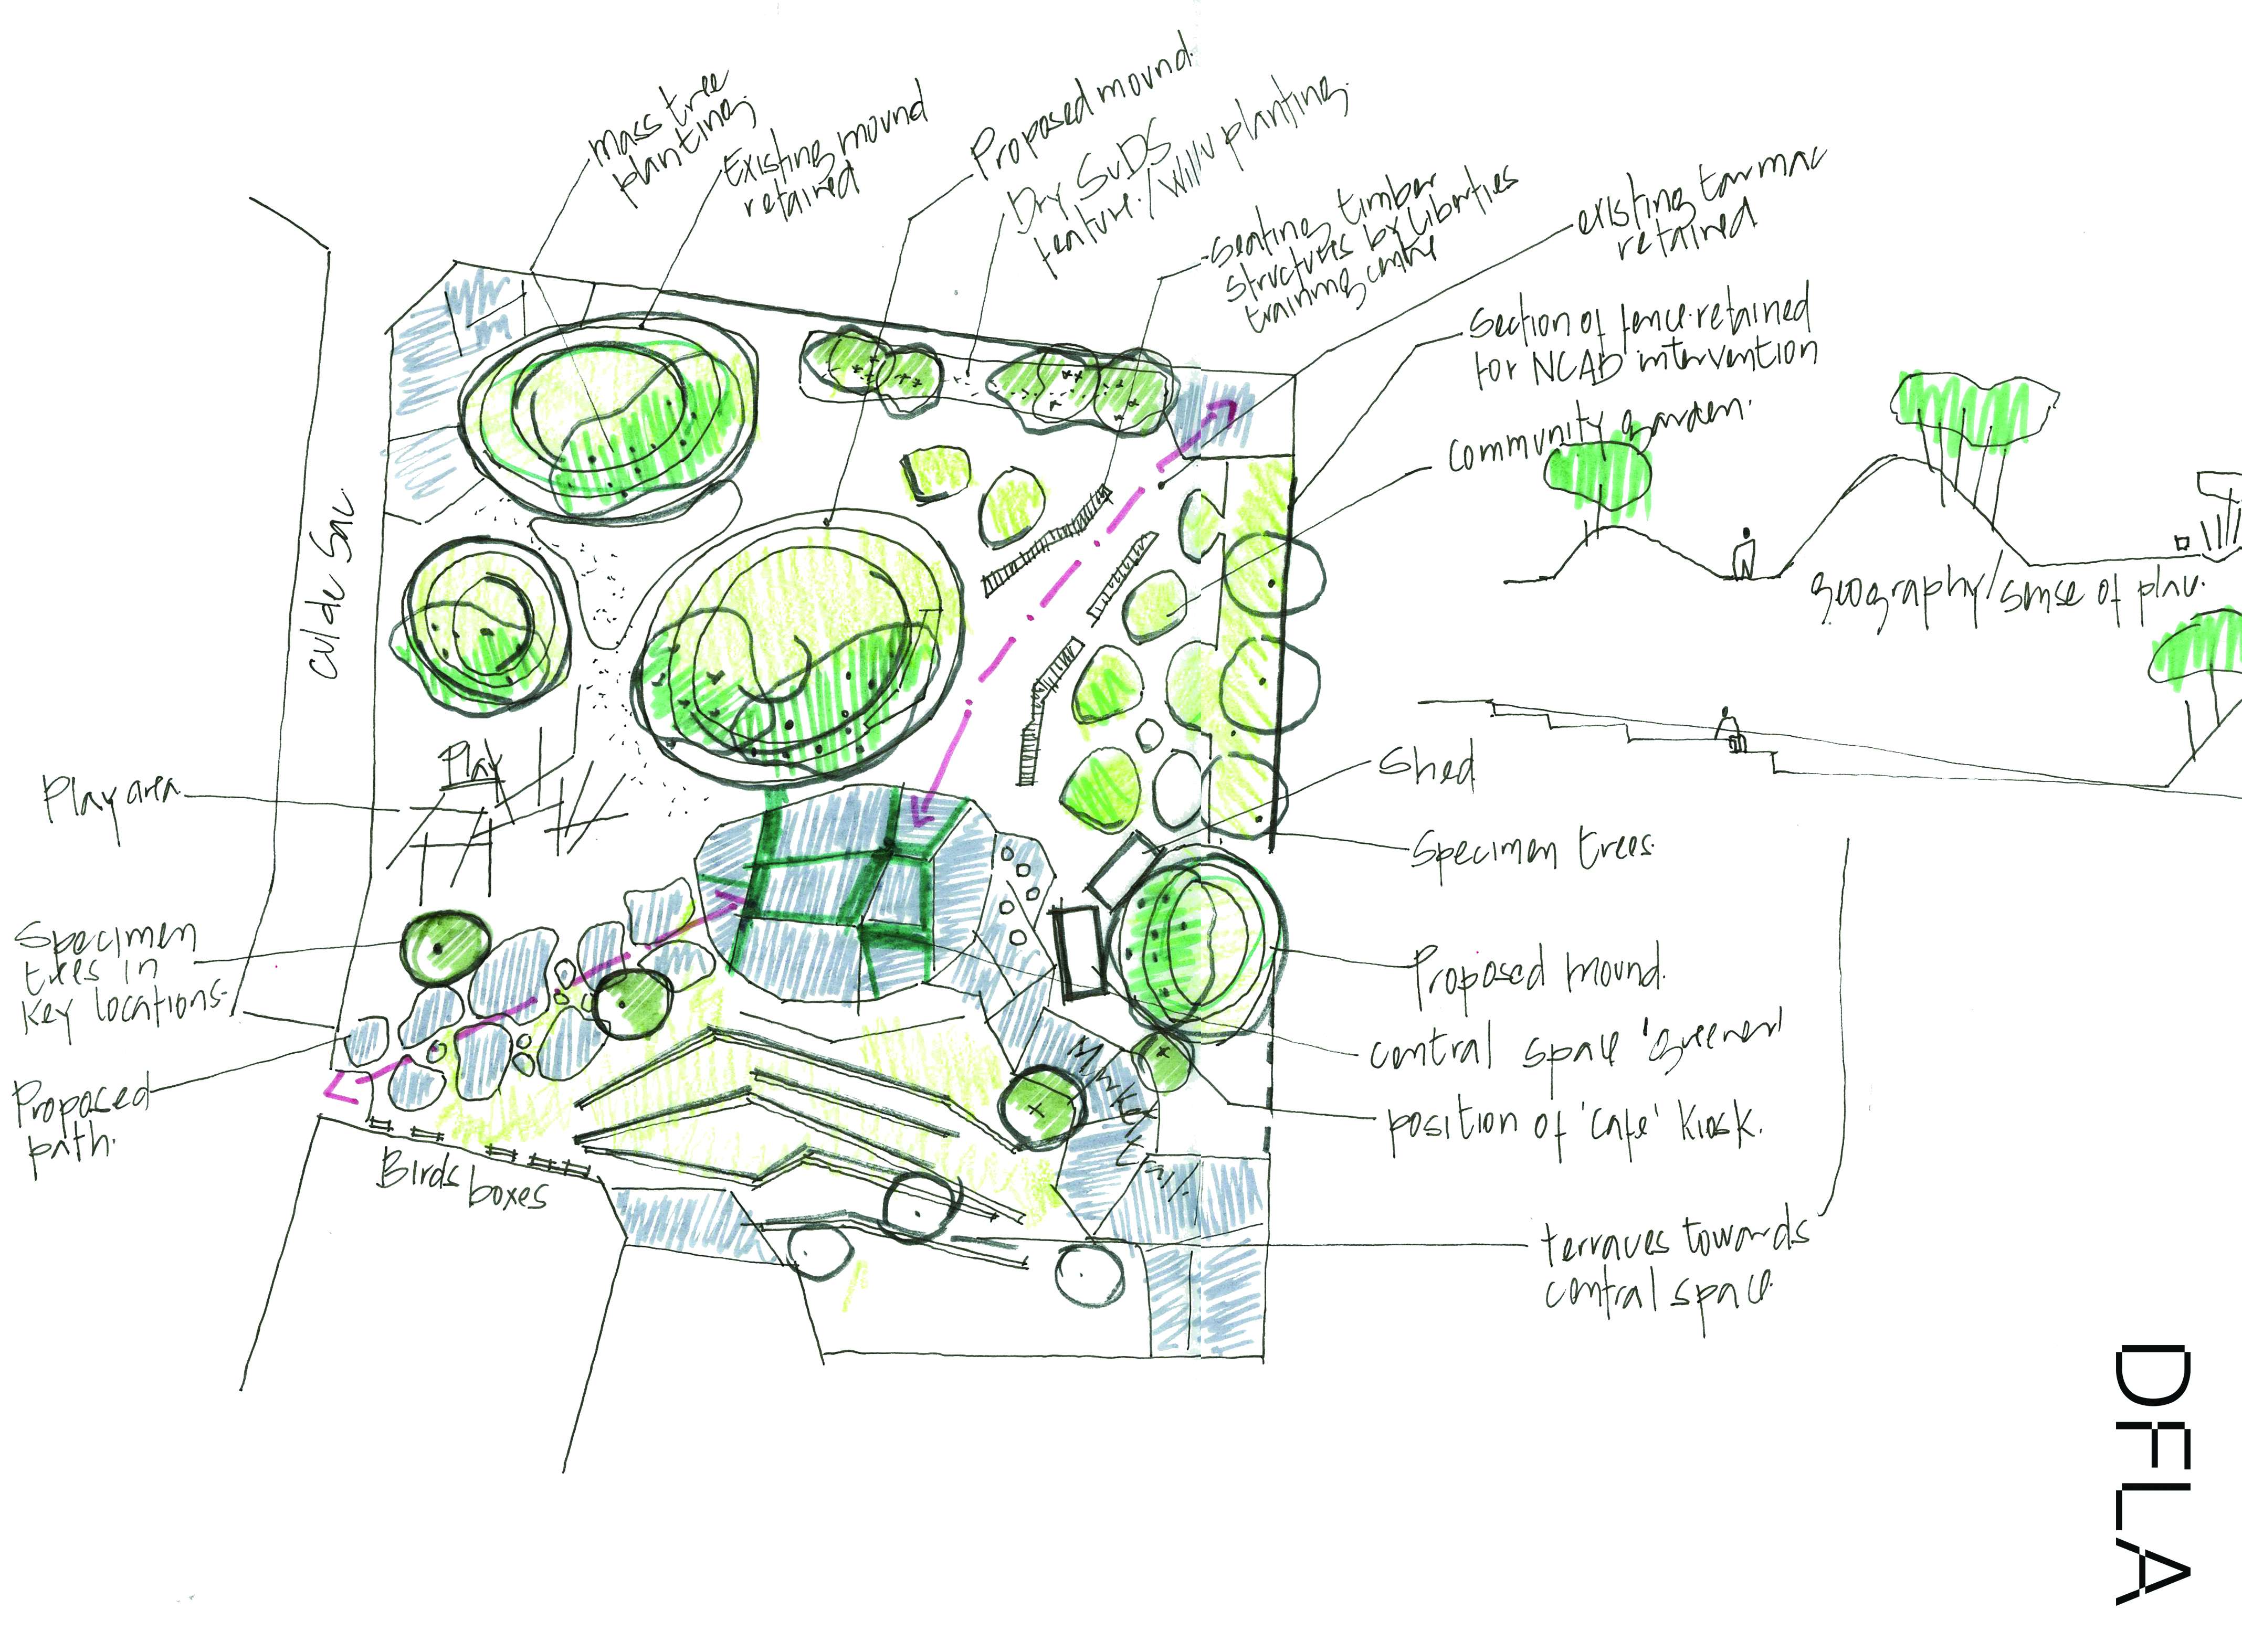 mass tree
planting.
Existing mound
retained
Proposed mound.
Dry SuDS
feature. / willow planting.
Seating timber
structures by Liberties
training centre
existing tarmac
retained
Section of fence retained
for NCAD intervention
community garden.
geography/sense of place.
cul de Sac
Play
Play area
Specimen
trees in
key locations.
Proposed
path.
Birds boxes
Market
Shed
Specimen trees.
Proposed mound.
central space 'greened'
position of 'Cafe' Kiosk.
terraces towards
central space.
DFLA